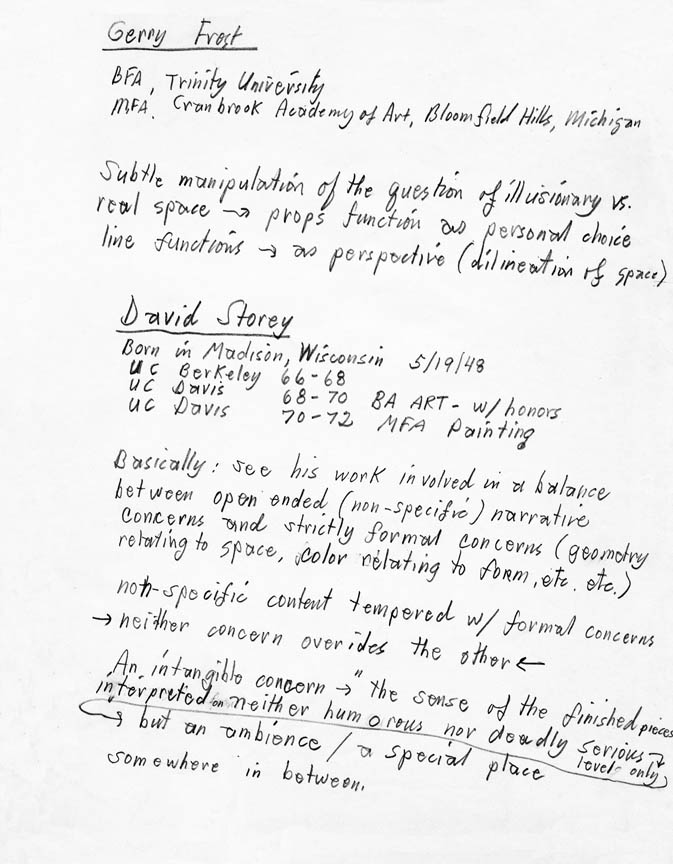 Gerry Frost
BFA, Trinity University
MFA. Cranbrook Academy of Art, Bloomfield Hills, Michigan
Subtle manipulation of the question of illusionary vs.
real space → props function as personal choice
line functions → as perspective (dilineation of space)
David Storey
Born in Madison, Wisconsin 5/19/48
UC Berkeley 66-68
UC Davis 68-70 BA ART - w/ honors
UC Davis 70-72 MFA Painting
Basically: see his work involved in a balance
between open ended (non-specific) narrative
concerns and strictly formal concerns (geometry
relating to space, color relating to form, etc. etc.)
non-specific content tempered w/ formal concerns
→ neither concern overides the other ←
An intangible concern → "the sense of the finished pieces
interpreted on neither humorous nor deadly serious →
levels only
↳ but an ambience / a special place
somewhere in between.